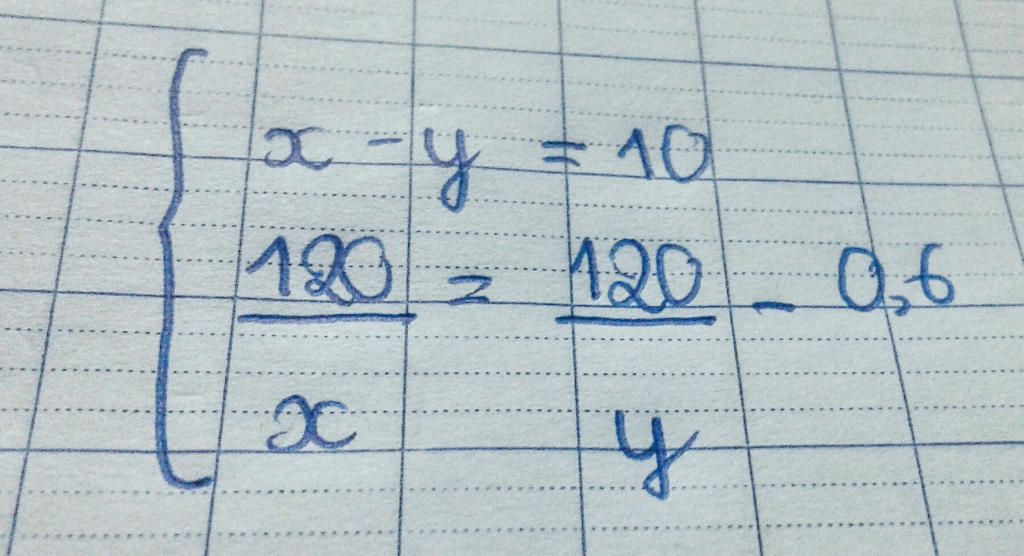 x - y = 10
120/x = 120/y - 0,6